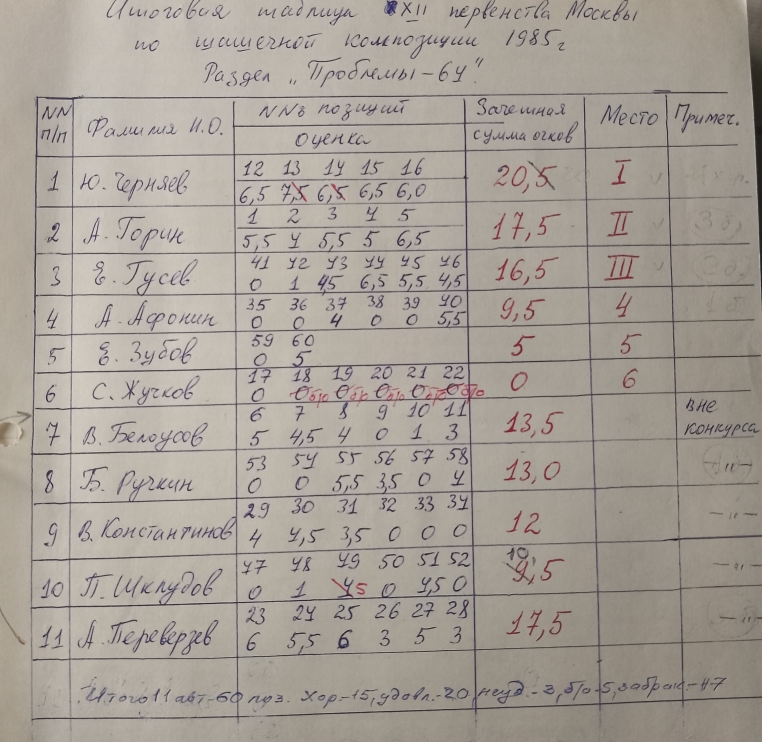 Итоговая таблица XII первенства Москвы
по шашечной композиции 1985г
Раздел „Проблемы-64"
NN п/п Фамилия И.О. NNs позиций Зачетная сумма очков Место Примеч.
Оценка
12 13 14 15 16
1 Ю. Черняев 6,5 7,5 6,5 6,5 6,0 20,5 I
1 2 3 4 5
2 А. Горин 5,5 4 5,5 5 6,5 17,5 II
41 42 43 44 45 46
3 Е. Гусев 0 1 4,5 6,5 5,5 4,5 16,5 III
35 36 37 38 39 40
4 А. Афонин 0 0 4 0 0 5,5 9,5 4
59 60
5 Е. Зубов 0 5 5 5
17 18 19 20 21 22
6 С. Жучков 0 0 б/о 0 б/о 0 б/о 0 б/о 0 б/о 0 6
6 7 8 9 10 11
7 В. Белоусов 5 4,5 4 0 1 3 13,5 вне конкурса
53 54 55 56 57 58
8 Б. Ручкин 0 0 5,5 3,5 0 4 13,0 -"-
29 30 31 32 33 34
9 В. Константинов 4 4,5 3,5 0 0 0 12 -"-
47 48 49 50 51 52
10 П. Шклудов 0 1 45 0 4,5 0 10, 9,5 -"-
23 24 25 26 27 28
11 А. Переверзев 6 5,5 6 3 5 3 17,5 -"-
Итого 11 авт-60 поз. Хор-15, удовл.-20, неуд.-3, б/о-5, забрак-17